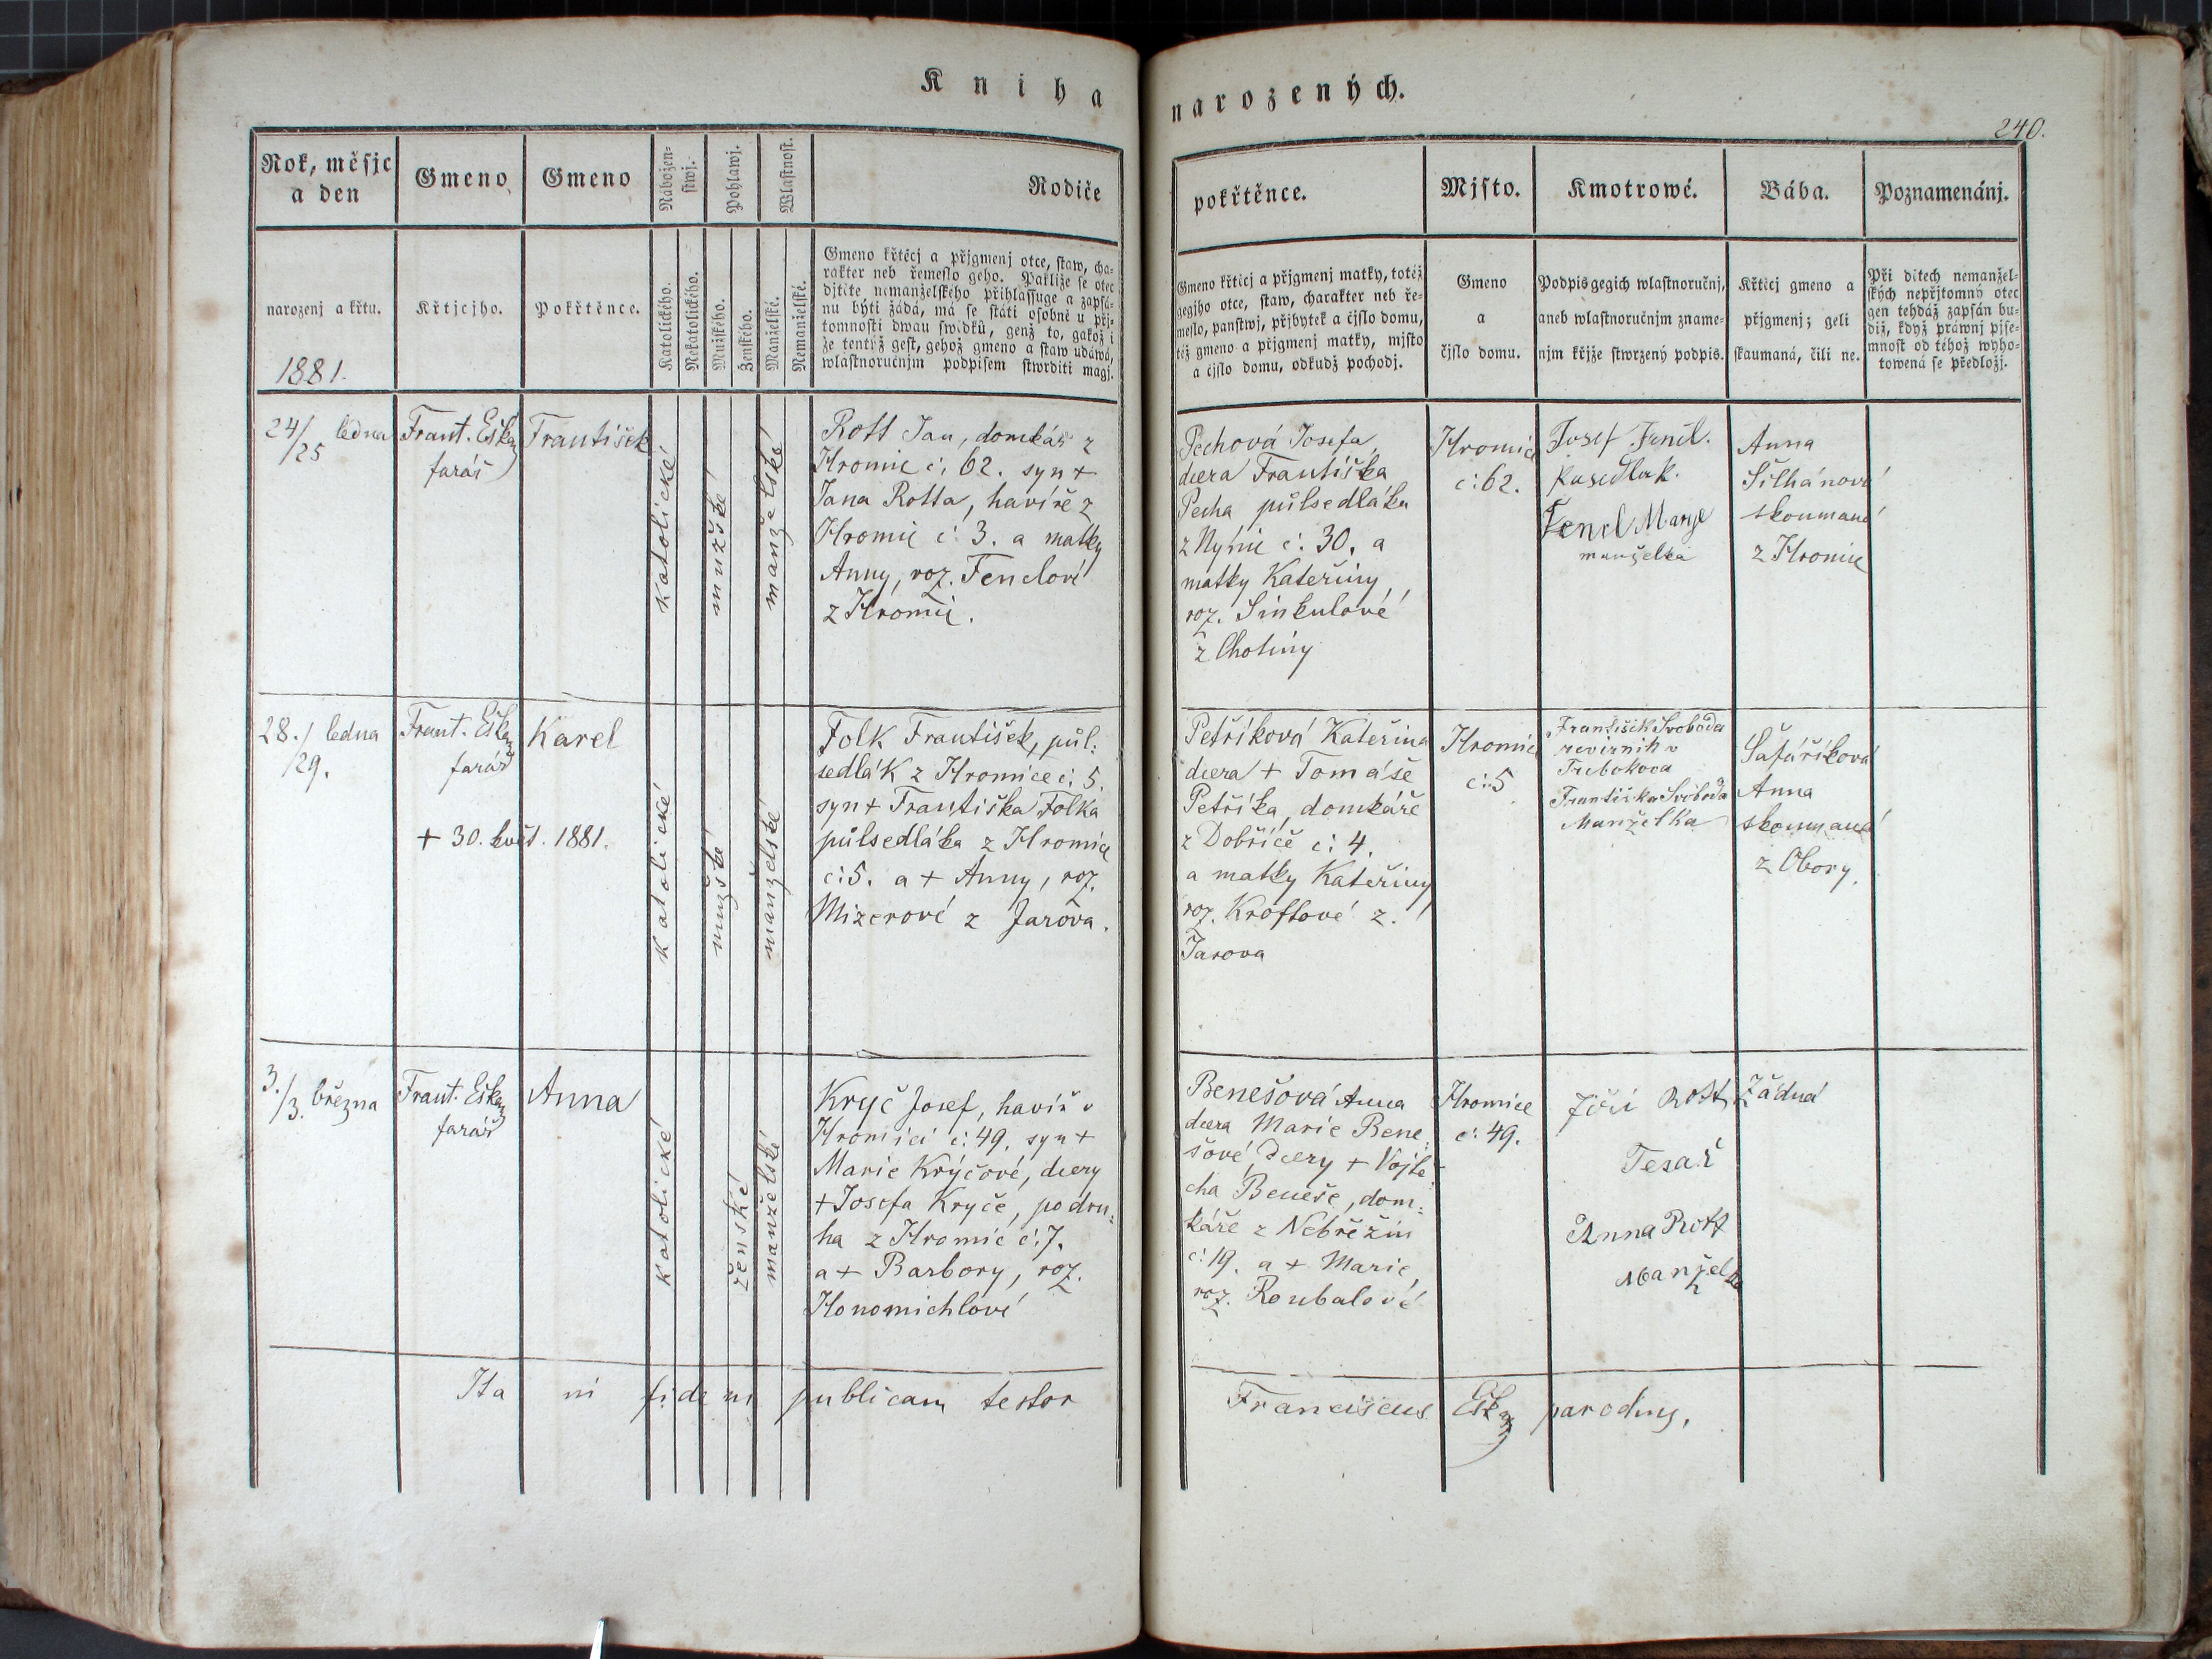 Kniha
narozených.
240.
Rok, měsjc
a den
Gmeno
Gmeno
Nábožen-
stwj.
Pohlawj.
Wlastnost.
Rodiče
pokřtěnce.
Mjsto.
Kmotrowé.
Bába.
Poznamenánj.
narozenj a křtu.
1881.
Křtjcjho.
Pokřtěnce.
Katolického.
Nekatolického.
Mužského.
Ženského.
Manželské.
Nemanželské.
Gmeno křtěcj a přjgmenj otce, staw, cha-
rakter neb řemeslo geho. Pakliže se otec
djtěte nemanželského přihlassuge a zapsá-
nu býti žádá, má se státi osobně u přj-
tomnosti dwau swědků, genž to, gakož i
že tentýž gest, gehož gmeno a staw udáwá,
wlastnoručnjm podpisem stwrditi magj.
Gmeno křticj a přjgmenj matky, totéž
gegjho otce, staw, charakter neb ře-
meslo, panstwj, přjbytek a čjslo domu,
též gmeno a přjgmenj matky, mjsto
a čjslo domu, odkudž pochodj.
Gmeno
a
čjslo domu.
Podpis gegich wlastnoručnj,
aneb wlastnoručnjm zname-
njm křjže stwrzený podpis.
Křticj gmeno a
přjgmenj; geli
skaumaná, čili ne.
Při djtech nemanžel-
ských nepřjtomný otec
gen tehdáž zapsán bu-
diž, když práwnj pjse-
mnost od téhož wyho-
towená se předložj.
24/25 ledna
Frant. Eška
farář
František
katolické
mužské
manželské
Rott Jan, domkář z
Hromic č. 62. syn +
Jana Rotta, havíře z
Hromic č. 3. a matky
Anny, roz. Fenclové
z Hromic.
Pechová Josefa,
dcera Františka
Pecha půlsedláka
z Nýřic č. 30. a
matky Kateřiny,
roz. Sinkulové
z Chotiny
Hromice
č: 62.
Josef Fencl.
Pusedlak.
Fencl Marye
manželka
Anna
Šilhánová
skoumaná
z Hromic
28./29. ledna
Frant. Eška
farář
Karel
+ 30. květ. 1881.
katolické
mužské
manželské
Folk František, půl-
sedlák z Hromice č. 5.
syn + Františka Folka
půlsedláka z Hromic
č: 5. a + Anny, roz.
Mizerové z Jarova.
Petříková Kateřina
dcera + Tomáše
Petříka, domkáře
z Dobříče č: 4.
a matky Kateřiny
roz. Kroftové z
Jarova
Hromice
č: 5
František Svoboda
revírník v
Třebokova
Františka Svoboda
Manželka
Šafaříková
Anna
skoumaná
z Obory.
3./3. března
Frant. Eška
farář
Anna
katolické
ženské
manželské
Kryč Josef, havíř v
Hromici č: 49. syn +
Marie Krýčové, dcery
+ Josefa Kryče, podru-
ha z Hromic č: 7.
a + Barbory, roz.
Honomichlové
Benešová Anna
dcera Marie Bene-
šové, dcery + Vojtě-
cha Beneše, dom-
káře z Nebřežin
č: 19. a + Marie,
roz. Roubalové
Hromice
č: 49.
Jiří Rott
Tesař
Anna Rott
Manželka
Žádná
Ita in fidem publicam testor Franciscus Eška parochus.